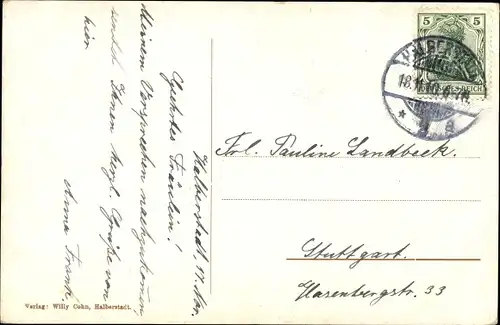 Halberstadt, 17. Nov.
Geehrtes Fräulein!
Meinem Versprechen nachzukommen,
sendet Ihnen herzl. Grüße von
hier
Anna Frank.
Frl. Pauline Landbeck.
Stuttgart.
Hasenbergstr. 33
Verlag: Willy Cohn, Halberstadt.
5 5
DEUTSCHES REICH
HALBERSTADT
18.11.